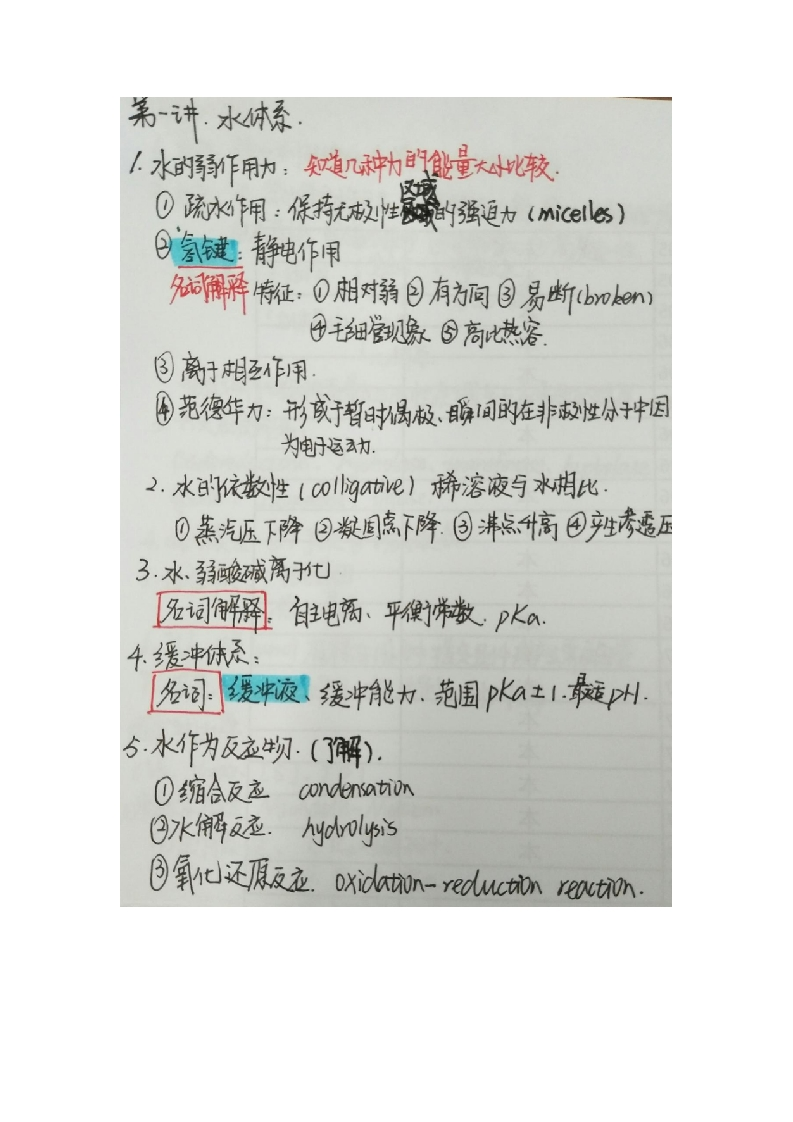 第一讲. 水体系.
1. 水的弱作用力: 知道几种力的能量大小比较.
区域
① 疏水作用: 保持无极性 的强迫力 (micelles)
② 氢键: 静电作用
名词解释 特征: ① 相对弱 ② 有方向 ③ 易断(broken)
④ 毛细管现象 ⑤ 高比热容.
③ 离子相互作用.
④ 范德华力: 形成于暂时偶极、瞬间的在非极性分子中因
为电子运动.
2. 水的依数性 (colligative) 稀溶液与水相比.
① 蒸汽压下降 ② 凝固点下降. ③ 沸点升高 ④ 产生渗透压
3. 水、弱酸碱离子化.
名词解释: 自主电离、平衡常数. pKa.
4. 缓冲体系:
名词: 缓冲液、缓冲能力、范围 pKa±1. 最适pH.
5. 水作为反应物. (了解).
① 缩合反应 condensation
② 水解反应. hydrolysis
③ 氧化还原反应. oxidation-reduction reaction.